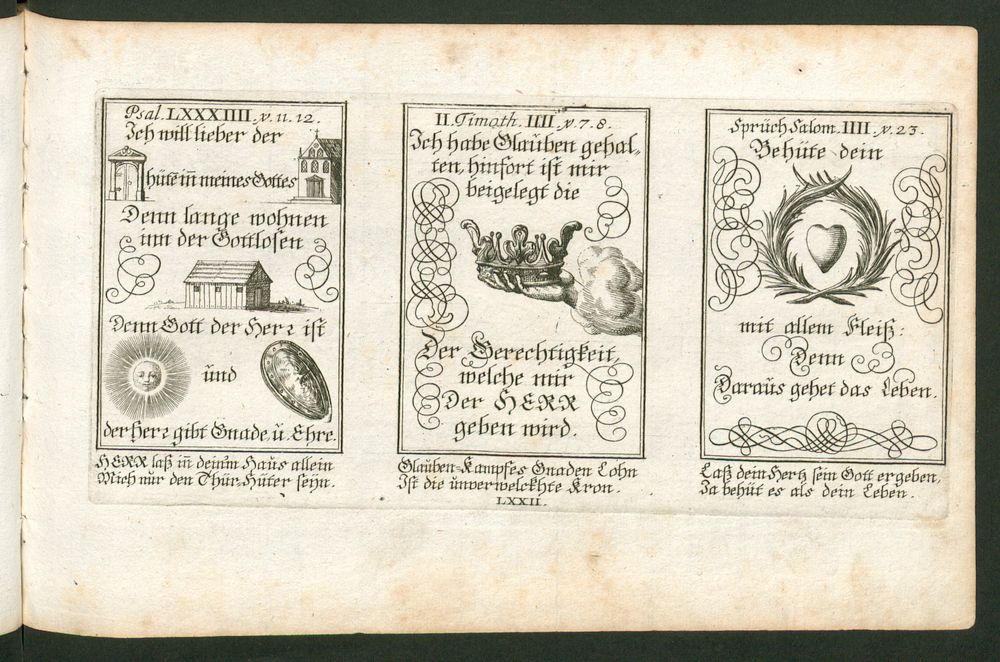 Psal. LXXXIIII. v. 11. 12.
Ich will lieber der
hüte in̄ meines Gottes
Denn lange wohnen
inn der Gottlosen
Denn Gott der Herr ist
und
der Herr gibt Gnade ū. Ehre.
HERR laß in̄ dein'm Haüs allein
Mich nur den Thür-Hüter seÿn.
II. Timoth. IIII. v. 7. 8.
Ich habe Glaüben gehal=
ten, hinfort ist mir
beigelegt die
Der Gerechtigkeit,
welche mir
Der HERR
geben wird.
Glaüben=Kampfes Gnaden Lohn
Ist die ünverwelckhte Kron.
LXXII.
Sprüch Salom. IIII. v. 23.
Behüte dein
mit allem Fleiß:
Denn
Daraüs gehet das Leben.
Laß dein Hertz sein Gott ergeben,
Ja behüt es als dein Leben.